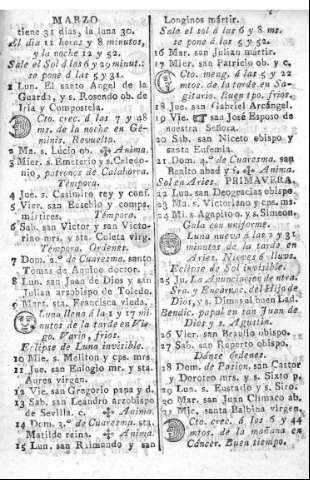 MARZO
tiene 31 dias, la luna 30.
El dia 11 horas y 8 minutos,
y la noche 12 y 52.
Sale el Sol á las 6 y 29 minut.:
se pone á las 5 y 31.
1 Lun. El santo Angel de la
Guarda, y s. Rosendo ob. de
Iria y Compostela.
Cto. crec. á las 7 y 48
ms. de la noche en Gé-
minis. Revuelto.
2 Ma. s. Lúcio ob. Anima.
3 Miér. s. Emeterio y s. Celedo-
nio, patronos de Calahorra.
Témpora.
4 Jue. s. Casimiro rey y conf.
5 Vier. san Eusebio y comps.
mártires. Témpora.
6 Sab. san Victor y san Victo-
rino mrs. y sta. Coleta virg.
Témpora. Ordenes.
7 Dom. 2.º de Cuaresma. santo
Tómas de Aquino doctor.
8 Lun. san Juan de Dios y san
Julian arzobispo de Toledo.
9 Mart. sta. Francisca viuda.
Luna llena á la 1 y 17 mi-
nutos de la tarde en Vir-
go. Vario, frios.
Eclipse de Luna invisible.
10 Mie. s. Meliton y cps. mrs.
11 Jue. san Eulogio mr. y sta.
Aurea virgen.
12 Vie. san Gregorio papa y d.
13 Sab. san Leandro arzobispo
de Sevilla. Anima.
14 Dom. 3.º de Cuaresma. sta.
Matilde reina. Anima.
15 Lun. san Raimundo y san
Longinos mártir.
Sale el sol á las 6 y 8 ms.
se pone á las 5 y 52.
16 Mar. san Julian mártir.
17 Mier. san Patricio ob. y c.
Cto. meng. á las 5 y 22
mtos. de la tarde en Sa-
gitario. Buen tpo. frios.
18 Jue. san Gabriel Arcángel.
19 Vie. san José Esposo de
nuestra Señora.
20 Sab. san Niceto obispo y
santa Eufemia.
21 Dom. 4.º de Cuaresma. san
Benito abad y f. Anima.
Sol en Aries. PRIMAVERA.
22 Lun. san Deogracias obispo
23 Ma. s. Victoriano y cps. ms.
24 Mi. s. Agapito o. y s. Simeon.
Gala con uniforme.
Luna nueva á las 2 y 3
minutos de la tarde en
Aries. Nieves ó lluvs.
Eclipse de Sol invisible.
25 Ju. La Anunciacion de ntra.
Sra. y Encarnac. del Hijo de
Dios, y s. Dimas el buen Lad.
Bendic. papal en san Juan de
Dios y s. Agustin.
26 Vier. san Braulio obispo.
27 Sab. san Ruperto obispo.
Danse órdenes.
28 Dom. de Pasion. san Castor
y Doroteo mrs. y s. Sixto p.
29 Lun. s. Eustasio y s. Siro.
30 Mar. san Juan Climaco ab.
31 Mie. santa Balbina virgen.
Cto. crec. á las 6 y 44
mtos. de la mañana en
Cáncer. Buen tiempo.